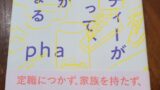 ティーが
って、
が
まる
pha
定職につかず、家族を持たず、